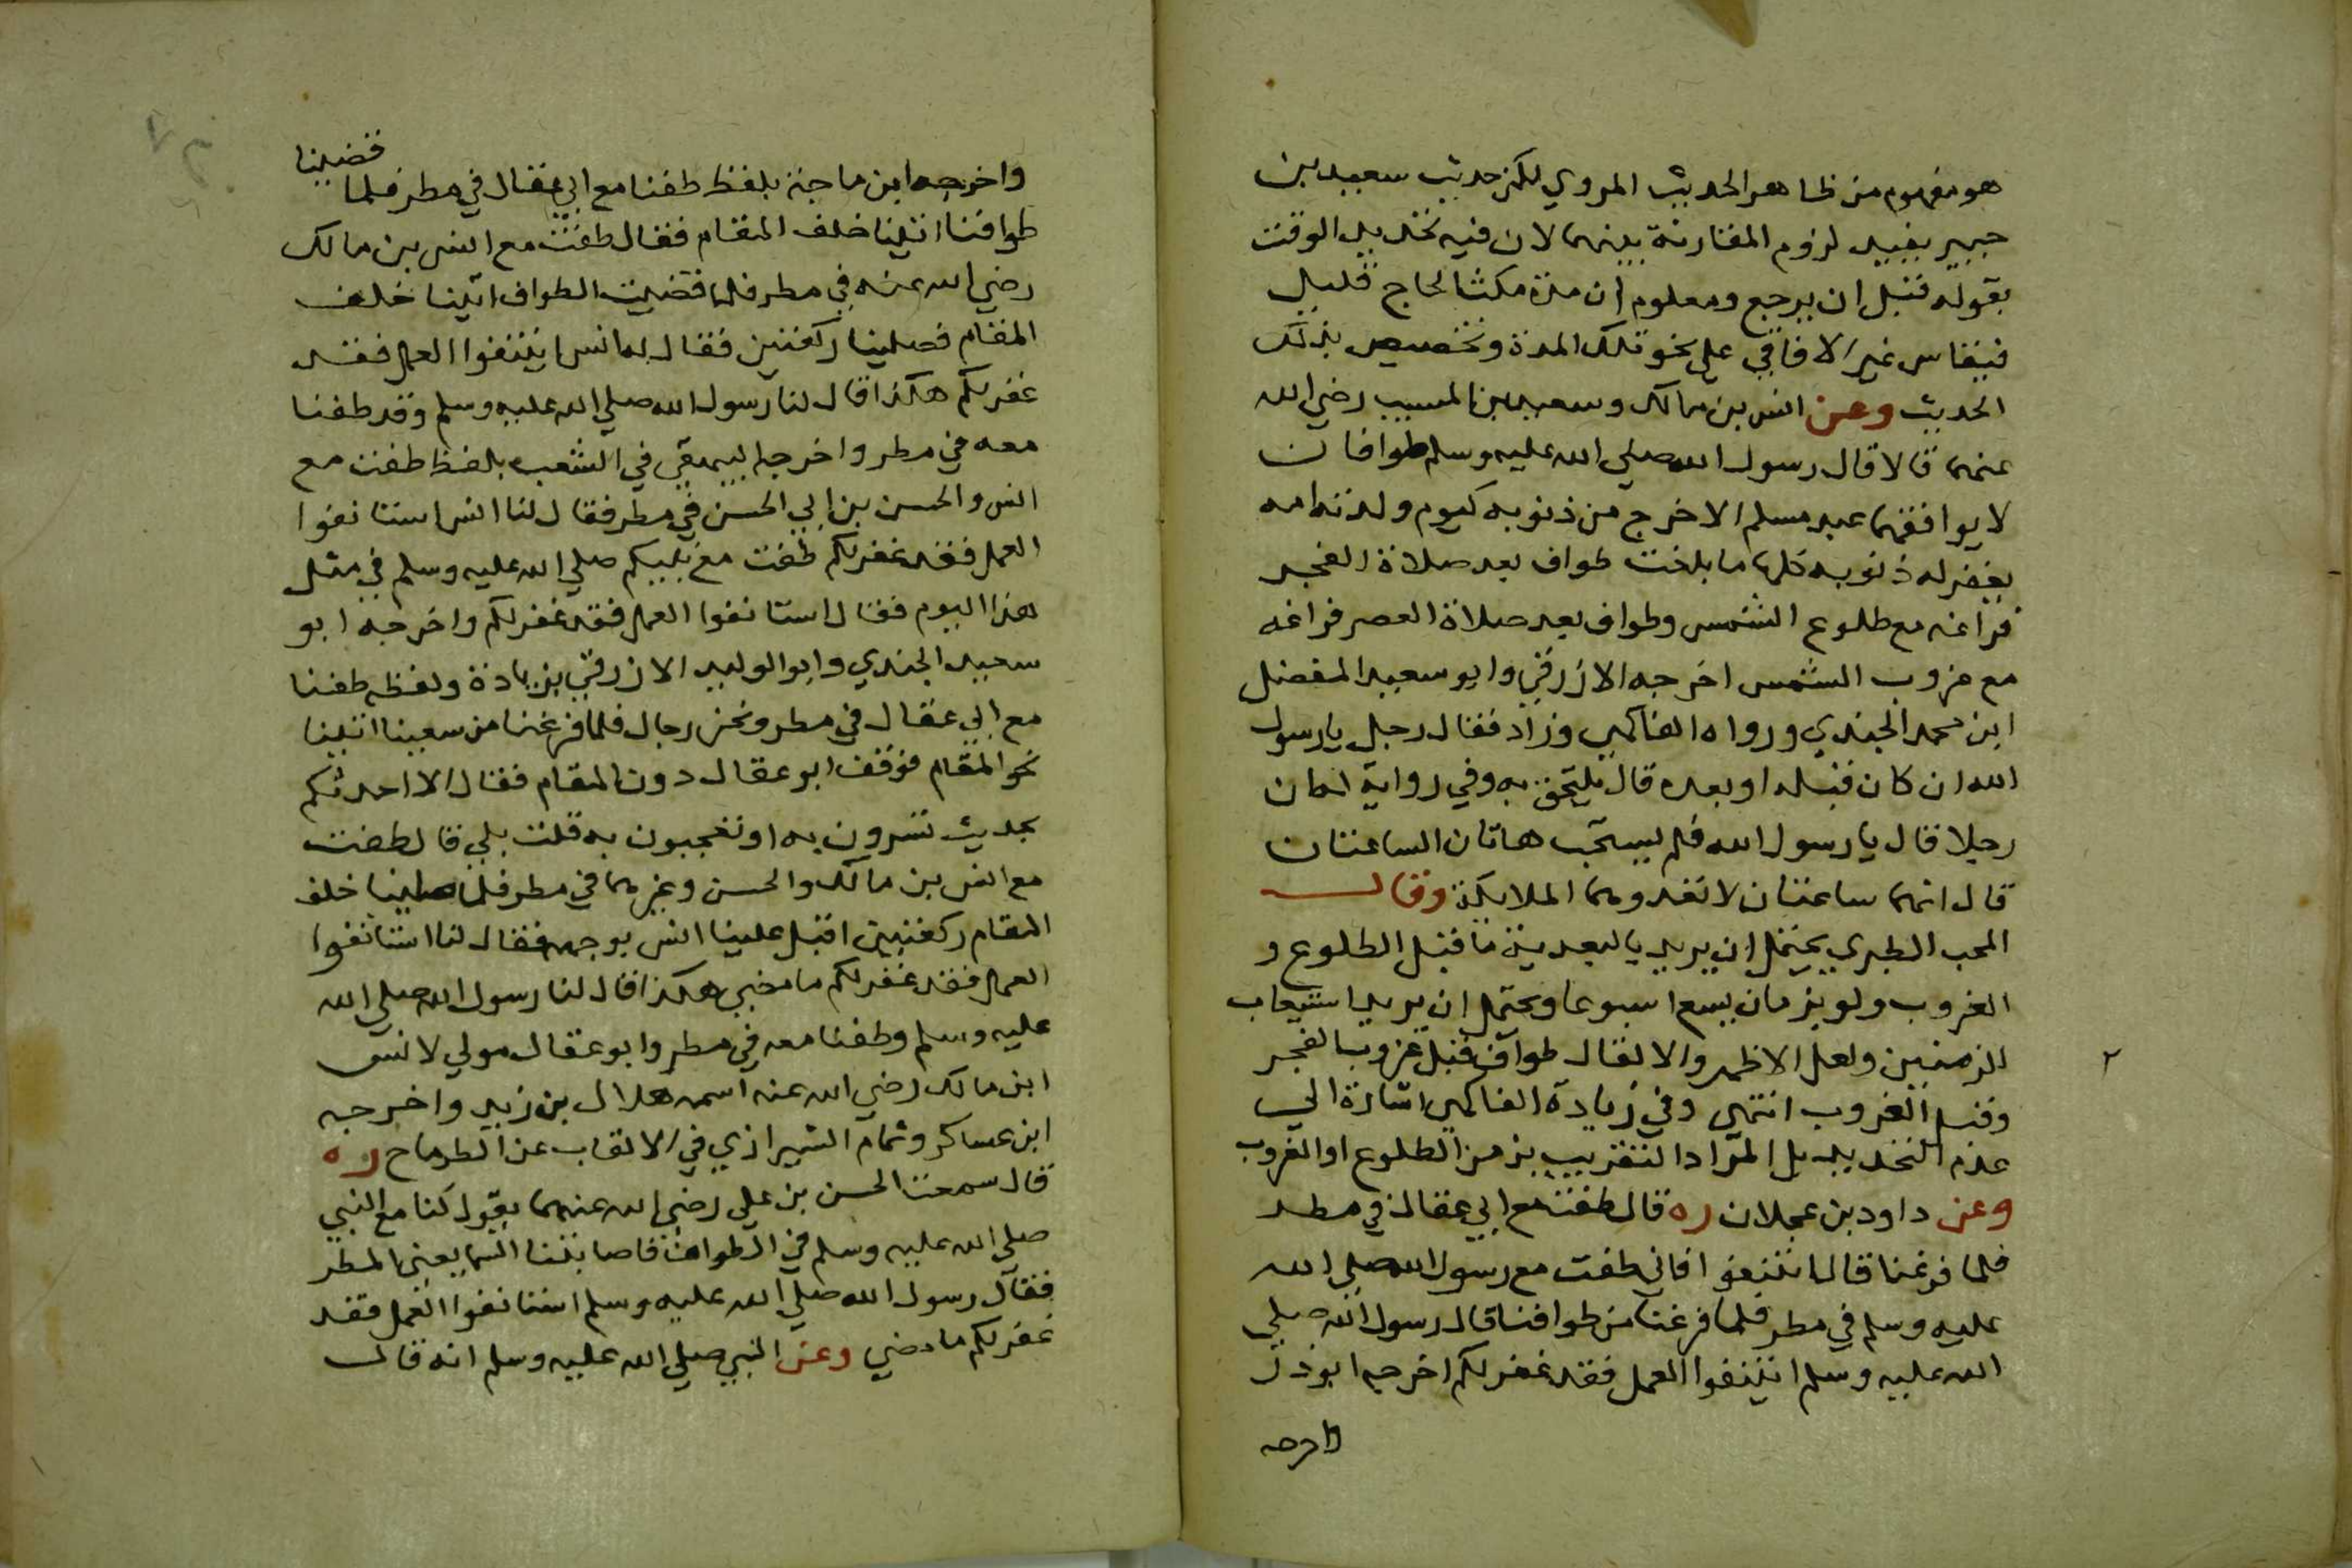 هو مفهوم من ظاهر الحديث المروي لكن حديث سعيد بن
جبير يفيد لزوم المقارنة بينهما لان فيه تحديد الوقت
بقوله قبل ان يرجع ومعلوم ان مدة مكث الحاج قليل
فيقاس غير الافاقي على نحو تلك المدة وتخصيص بذلك
الحديث وعن انس بن مالك وسعيد بن المسيب رضي الله
عنهما قالا قال رسول الله صلي الله عليه وسلم طوافان
لا يوافقهما عبد مسلم الا خرج من ذنوبه كيوم ولدته امه
يغفر له ذنوبه كلها ما بلغت طواف بعد صلاة الفجر
فراغه مع طلوع الشمس وطواف بعد صلاة العصر فراغه
مع غروب الشمس اخرجه الازرقي وابو سعيد المفضل
ابن محمد الجندي ورواه الفاكهي وزاد فقال رجل يا رسول
الله ان كان قبله او بعده قال يلحق به وفي رواية ان
رجلا قال يا رسول الله فلم يستحب هاتان الساعتان
قال انهما ساعتان لا تعدوهما الملايكة وقال
المحب الطبري يحتمل ان يريد بالبعدية ما قبل الطلوع و
الغروب ولو بزمان يسع اسبوعا ويحتمل ان يريد استيعاب
الزمنين ولعل الاظهر والا لقال طواف قبل غروب الفجر
وقبل الغروب انتهى وفي زيادة الفاكهي اشارة الي
عدم التحديد بل المراد التقريب بزمن الطلوع او الغروب
وعن داود بن عجلان ره قال طفت مع ابي عقال في مطر
فلما فرغنا قال ائتنفوا فاني طفت مع رسول الله صلي الله
عليه وسلم في مطر فلما فرغنا من طوافنا قال رسول الله صلي
الله عليه وسلم ائتنفوا العمل فقد غفر لكم اخرجه ابو ذر
واخرجه
٢
واخرجه ابن ماجة بلفظ طفنا مع ابي عقال في مطر فلما قضينا
طوافنا اتينا خلف المقام فقال طفت مع انس بن مالك
رضي الله عنه في مطر فلما قضينا الطواف اتينا خلف
المقام فصلينا ركعتين فقال لنا انس ايتنفوا العمل فقد
غفر لكم هكذا قال لنا رسول الله صلي الله عليه وسلم وقد طفنا
معه في مطر واخرجه البيهقي في الشعب بلفظ طفت مع
انس والحسن بن ابي الحسن في مطر فقال لنا انس استانفوا
العمل فقد غفر لكم طفت مع نبيكم صلي الله عليه وسلم في مثل
هذا اليوم فقال استانفوا العمل فقد غفر لكم واخرجه ابو
سعيد الجندي وابو الوليد الازرقي بزيادة ولفظه طفنا
مع ابي عقال في مطر ونحن رجال فلما فرغنا من سعينا اتينا
نحو المقام فوقف ابو عقال دون المقام فقال الا احدثكم
بحديث تسرون به او تعجبون به قلت بلي قال طفت
مع انس بن مالك والحسن وغيرهما في مطر فلما صلينا خلف
المقام ركعتين اقبل علينا انس بوجهه فقال لنا استانفوا
العمل فقد غفر لكم ما مضي هكذا قال لنا رسول الله صلي الله
عليه وسلم وطفنا معه في مطر وابو عقال مولي لانس
ابن مالك رضي الله عنه اسمه هلال بن زيد واخرجه
ابن عساكر وتمام الشيرازي في الالقاب عن الطرماح ره
قال سمعت الحسن بن علي رضي الله عنهما يقول كنا مع النبي
صلي الله عليه وسلم في الطواف فاصابتنا السما يعني المطر
فقال رسول الله صلي الله عليه وسلم استانفوا العمل فقد
غفر لكم ما مضي وعن النبي صلي الله عليه وسلم انه قال